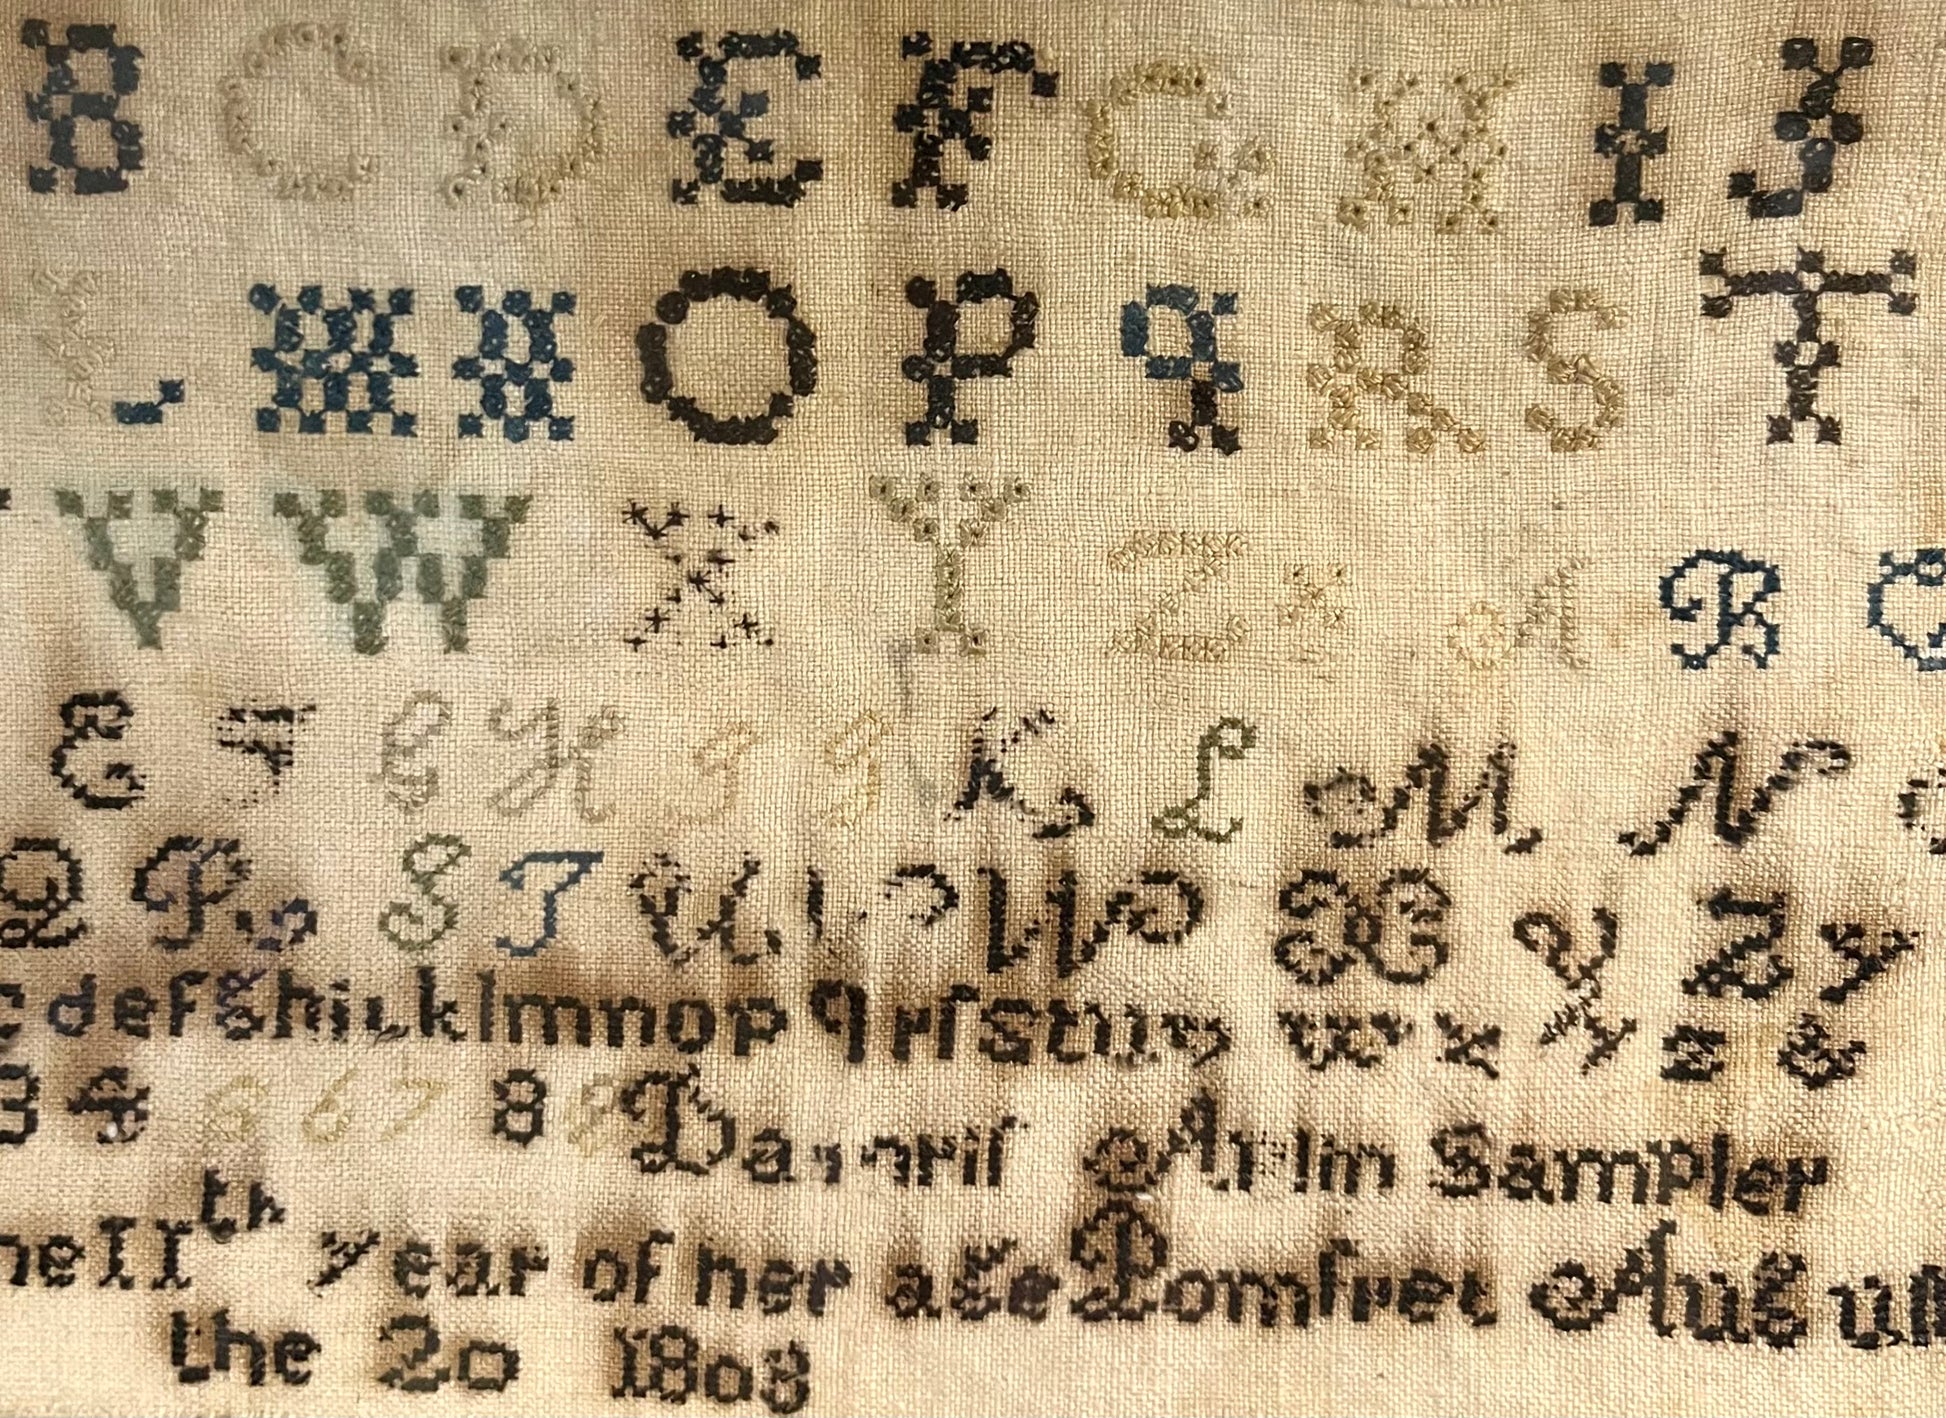 B C D E F G H I J
L M N O P q R S T
V W X Y Z x A B C
E F G H I J K L M N
Q R S T U V W X Y Z y
c d e f g h i k l m n o p q r ſ s t u v w x y z &
3 4 5 6 7 8 9 Sampler
he IIth year of her age Pomfret Auguſt
the 20 1803